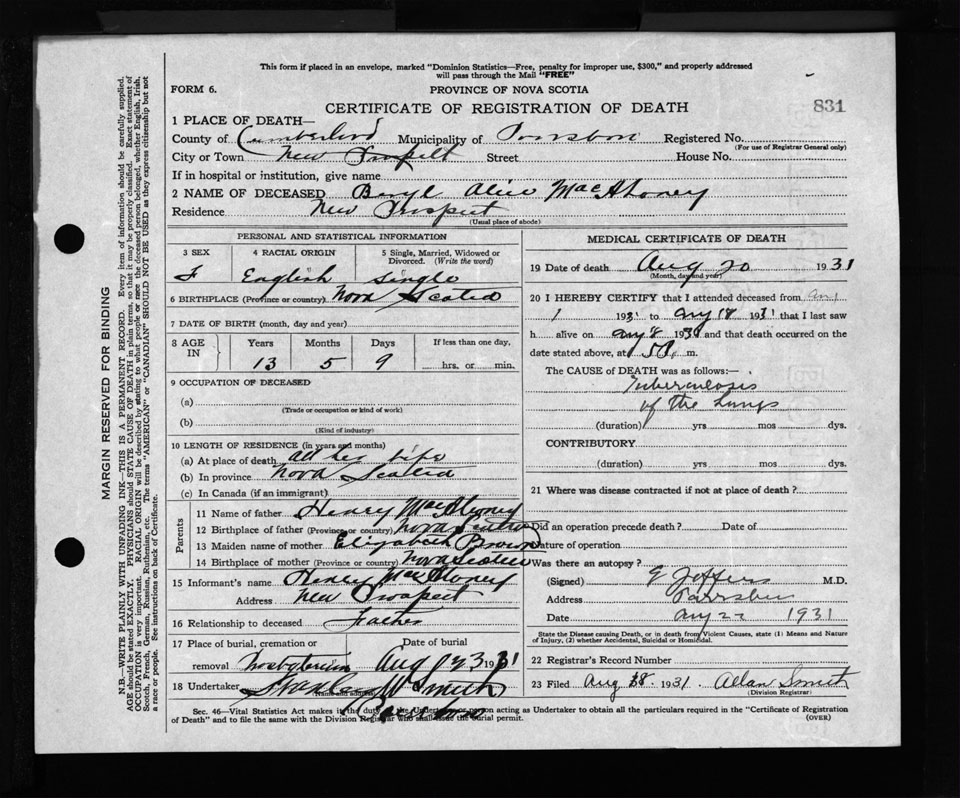 This form if placed in an envelope, marked "Dominion Statistics—Free, penalty for improper use, $300," and properly addressed
will pass through the Mail "FREE"
FORM 6. PROVINCE OF NOVA SCOTIA
CERTIFICATE OF REGISTRATION OF DEATH 831
1 PLACE OF DEATH—
County of Cumberland Municipality of Parrsboro Registered No.
(For use of Registrar General only)
City or Town New Prospect Street House No.
If in hospital or institution, give name
2 NAME OF DECEASED Beryl Alice MacAloney
Residence New Prospect
(Usual place of abode)
PERSONAL AND STATISTICAL INFORMATION
3 SEX 4 RACIAL ORIGIN 5 Single, Married, Widowed or Divorced. (Write the word)
F English Single
6 BIRTHPLACE (Province or country) Nova Scotia
7 DATE OF BIRTH (month, day and year)
8 AGE IN Years Months Days If less than one day,
13 5 9 hrs. or min.
9 OCCUPATION OF DECEASED
(a)
(Trade or occupation or kind of work)
(b)
(Kind of industry)
10 LENGTH OF RESIDENCE (in years and months)
(a) At place of death all her life
(b) In province Nova Scotia
(c) In Canada (if an immigrant)
Parents
11 Name of father Henry MacAloney
12 Birthplace of father (Province or country) Nova Scotia
13 Maiden name of mother Elizabeth Brown
14 Birthplace of mother (Province or country) Nova Scotia
15 Informant's name Henry MacAloney
Address New Prospect
16 Relationship to deceased Father
17 Place of burial, cremation or removal Date of burial
Aug 23 1931
18 Undertaker W Smith
(Name and address)
MEDICAL CERTIFICATE OF DEATH
19 Date of death Aug 20 1931
(Month, day and year)
20 I HEREBY CERTIFY that I attended deceased from
1 193 to Aug 18 1931 that I last saw
h alive on Aug 8 193 and that death occurred on
date stated above, at m.
The CAUSE OF DEATH was as follows:—
Tuberculosis
of the Lungs
(duration) yrs mos dys.
CONTRIBUTORY
(duration) yrs. mos. dys.
21 Where was disease contracted if not at place of death?
Did an operation precede death? Date of
Nature of operation
Was there an autopsy?
(Signed) M.D.
Address Parrsboro
Date Aug 22 1931
State the Disease causing Death, or in death from Violent Causes, state (1) Means and Nature
of Injury, (2) whether Accidental, Suicidal or Homicidal.
22 Registrar's Record Number
23 Filed Aug 28. 1931. Allan Smith
(Division Registrar)
Sec. 46—Vital Statistics Act makes it the duty of the Undertaker or person acting as Undertaker to obtain all the particulars required in the "Certificate of Registration
of Death" and to file the same with the Division Registrar who shall issue the burial permit.
(OVER)
MARGIN RESERVED FOR BINDING
N.B.—WRITE PLAINLY WITH UNFADING INK—THIS IS A PERMANENT RECORD. Every item of information should be carefully supplied.
AGE should be stated EXACTLY. PHYSICIANS should STATE CAUSE OF DEATH in plain terms, so that it may be properly classified. Exact statement of
OCCUPATION is very important. RACIAL ORIGIN will be described by stating to what people or race the deceased person belonged, whether English, Irish,
Scotch, French, German, Russian, Ruthenian, etc. The terms "AMERICAN" or "CANADIAN" SHOULD NOT BE USED as they express citizenship but not
a race or people. See instructions on back of Certificate.